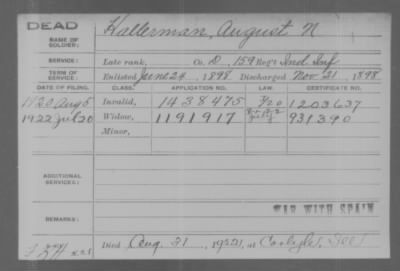 DEAD
NAME OF SOLDIER: Hallerman, August N
SERVICE: Late rank, Co. D, 159 Reg't Ind Inf
TERM OF SERVICE: Enlisted June 24, 1898 Discharged Nov 21, 1898
DATE OF FILING. CLASS. APPLICATION NO. LAW. CERTIFICATE NO.
1920 Aug 5 Invalid, 1438475 1203637
1922 Widow, 1191917 931390
Minor,
ADDITIONAL SERVICES:
WAR WITH SPAIN
REMARKS:
Died Aug. 31, 1921, at Carlyle, Ill